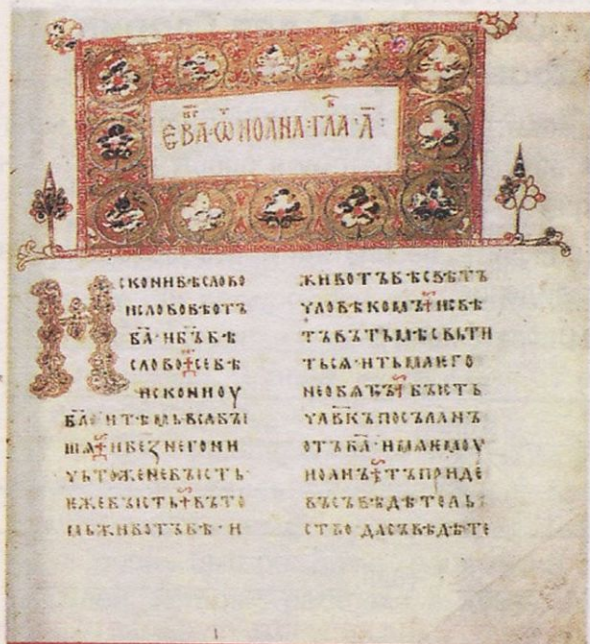 ЕВА·Ѿ ИОАНА·ГЛА·А҃:
ИСКОНИБѢСЛОВО
ИСЛОВОБѢОТЪ
Б҃А·ИБ҃ЪБѢ
СЛОВО·СЕБѢ
ИСКОНИОУ
Б҃А·ИТѢМЬВСѦБЪІ
ШѦ·ИБЕZНЕГОНИ
ЧЬТОЖЕНЕБЪІСТЬ·
ЕЖЕБЪІСТЬ·ВЪТО
МЬЖИВОТЪБѢ·И
ЖИВОТЪБѢСВѢТЪ
ЧЛОВѢКОМЪ·ИСВѢ
ТЪВЪТЬМѢСВЬТИ
ТЬСѦ·ИТЬМАѤГО
НЕОБѦТЪ·БЪІСТЬ
ЧЛ҃ВКЪПОСЪЛАНЪ
ОТЪБ҃А·ИМѦѤМОУ
ИОАНЪ·ТЪПРИДЕ
ВЪСЪВѢДѢТЕЛЬ
СТВО·ДАСЪВѢДѢТЕ